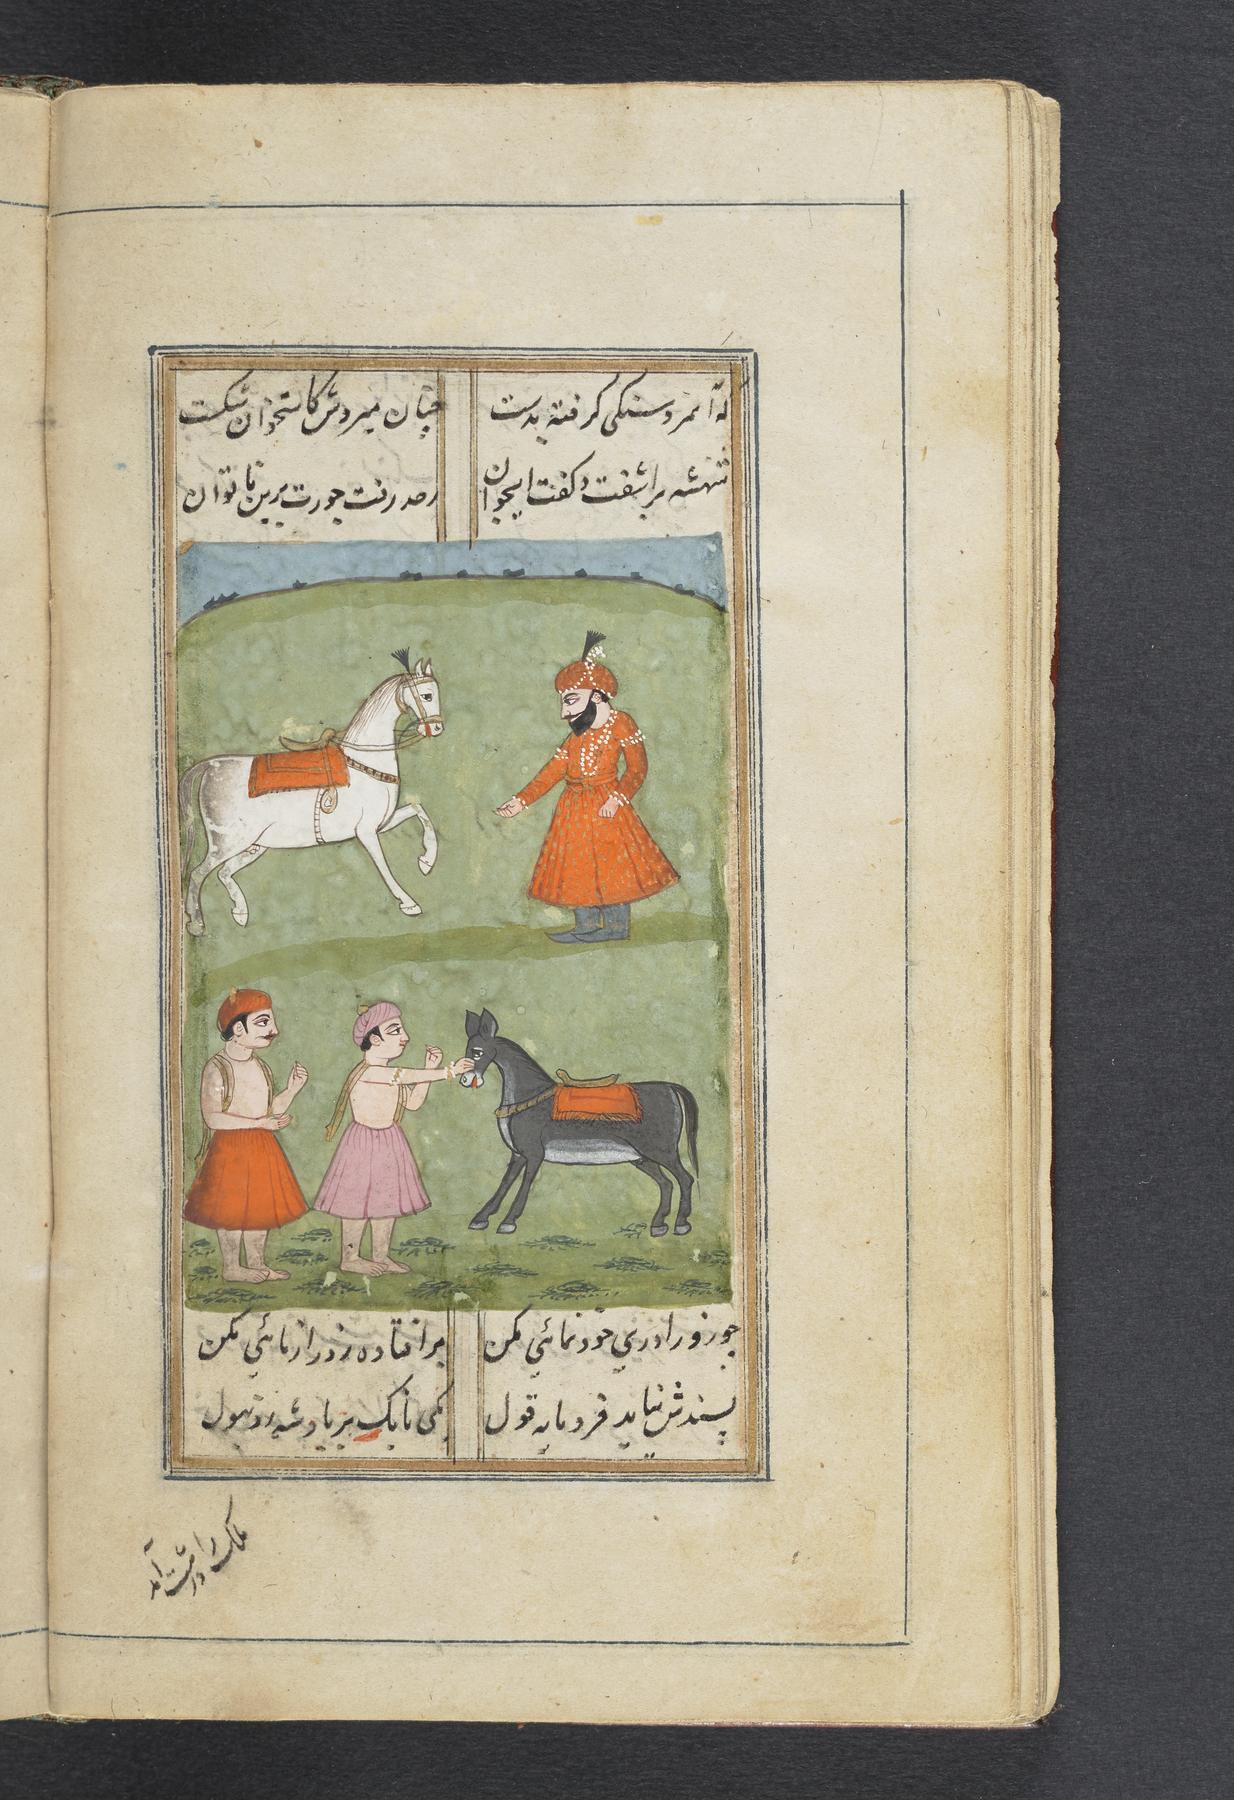 که آنمرد سنگی گرفته بدست
چنان میزدش کاستخوان شکست
شهنشه برآشفت و گفت ایجوان
زحد رفت جورت برین ناتوان
چو زور آوری خودنمائی مکن
بر افتاده زور آزمائی مکن
پسندش نیاید فرومایه قول
یکی بانک بر پادشه زد بهول
ملک را درشت آمد